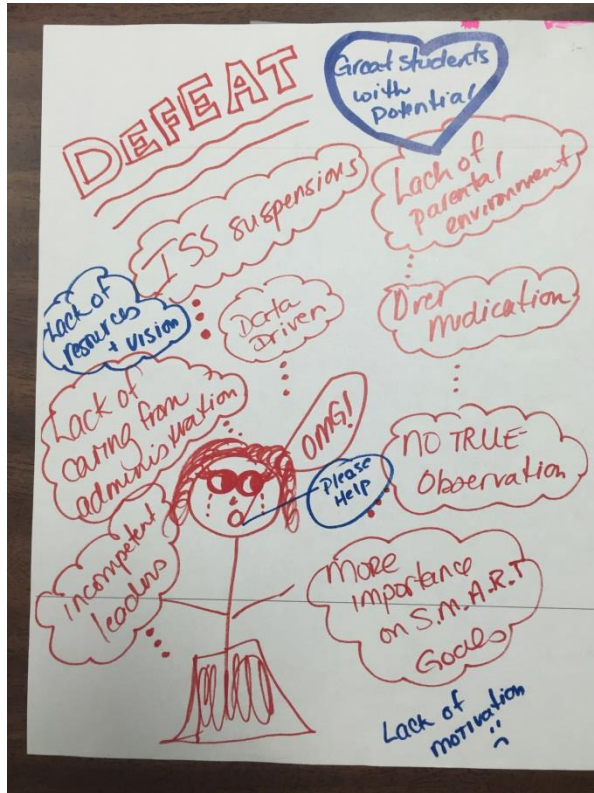 DEFEAT
Great students
with
potential
ISS suspensions
Lack of
parental
environment
Lack of
resources
+ vision
Data
Driven
Over
Medication
Lack of
caring from
administration
OMG!
Please
Help
NO TRUE
Observation
incompetent
leaders
More
importance
on S.M.A.R.T
Goals
Lack of
motivation